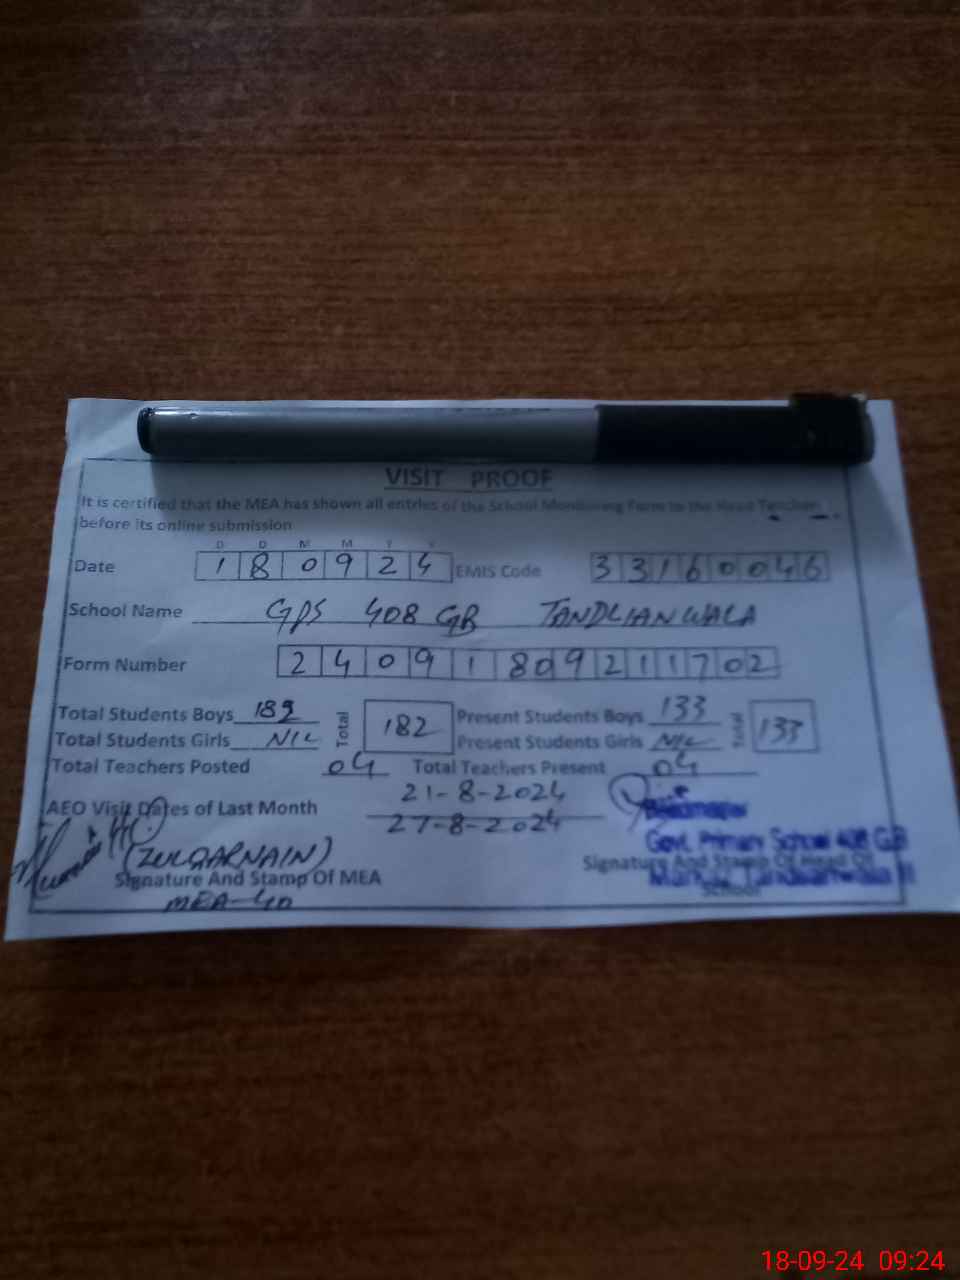 VISIT PROOF
It is certified that the MEA has shown all entries of the School Monitoring Form to the Head Teacher
before its online submission
D D M M Y Y
Date 180924 EMIS Code 33160046
School Name GPS 408 GB TANDLIANWALA
Form Number 24091809211702
Total Students Boys 182 Total 182 Present Students Boys 133 Total 133
Total Students Girls NIL Present Students Girls NIL
Total Teachers Posted 04 Total Teachers Present 04
AEO Visit Dates of Last Month 21-8-2024
27-8-2024
(ZULQARNAIN)
Govt. Primary School 408 G.B
Signature And Stamp Of MEA Signature And Stamp Of Head Of School
MEA-40
18-09-24 09:24